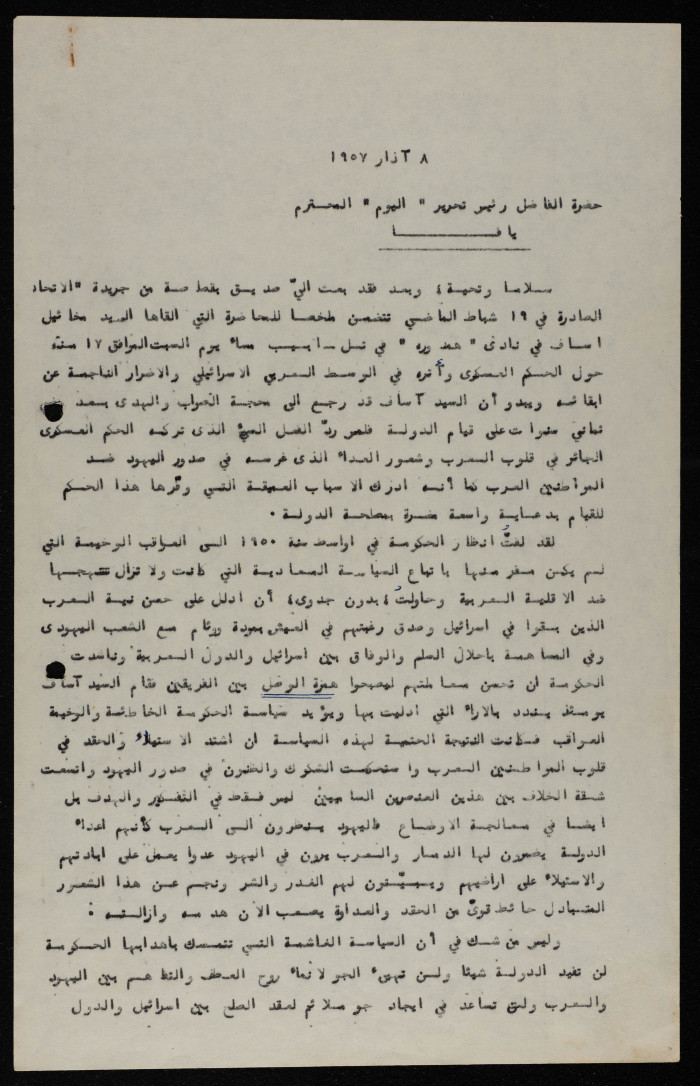 ٨ آذار ١٩٥٧
حضرة الفاضل رئيس تحرير " اليوم " المحترم
يافا
سلاما وتحية ، وبعد فقد بعث اليّ صديق بقطاصة من جريدة "الاتحاد
الصادرة في ١٩ شباط الماضي تتضمن ملخصا للمحاضرة التي القاها السيد مخائيل
اساف في نادي " " في تل ـ ابيب مساء يوم السبت الموافق ١٧ منه
حول الحكم العسكرى وأثره في الوسط العربي الاسرائيلي والاضرار الناجمة عن
ابقائه ويبدو أن السيد آساف قد رجع الى محجة الصواب والهدى بعد
ثماني سنوات على قيام الدولة فلمس ردّ الفعل السيّئ الذى تركه الحكم العسكرى
الجائر في قلوب العرب وشعور العداء الذى غرسه في صدور اليهود ضد
المواطنين العرب كما أنه ادرك الاسباب العميقة التي وفّرها هذا الحكم
للقيام بدعاية واسعة مضرة بمصلحة الدولة ٠
لقد لفتُّ انظار الحكومة في اواسط سنة ١٩٥٠ الى العواقب الوخيمة التي
لم يكن مفر منها باتباع السياسة المعادية التي كانت ولا تزال تنتهجها
ضد الاقلية العربية وحاولتُ ، بدون جدوى ، أن ادلل على حسن نية العرب
الذين بقوا في اسرائيل وصدق رغبتهم في العيش بمودة ووئام مع الشعب اليهودى
وفي المساهمة باحلال السلم والوفاق بين اسرائيل والدول العربية وناشدت
الحكومة ان تحسن معاملتهم ليصبحوا همزة الوصل بين الفريقين فقام السيد آساف
يومئذ يندد بالاراء التي ادليت بها ويؤيد سياسة الحكومة الخاطئة والوخيمة
العواقب فكانت النتيجة الحتمية لهذه السياسة ان اشتد الاستياء والحقد في
قلوب المواطنين العرب واستحكمت الشكوك والظنون في صدور اليهود واتسعت
شقة الخلاف بين هذين العنصرين الساميين ليس فقط في التفكير والهدف بل
ايضا في معالجة الاوضاع فاليهود ينظرون الى العرب كأنهم اعداء
الدولة يضمرون لها الدمار والعرب يرون في اليهود عدوا يعمل على ابادتهم
والاستيلاء على اراضيهم ويبيّتون لهم الغدر والشر ونجم عن هذا الشعور
المتبادل حائط قوىّ من الحقد والعداوة يصعب الآن هدمه وازالته :
وليس من شك في أن السياسة الغاشمة التي تتمسك باهدابها الحكومة
لن تفيد الدولة شيئا ولن تهيئ الجو لانماء روح العطف والتفاهم بين اليهود
والعرب ولن تساعد في ايجاد جو ملائم لعقد الصلح بين اسرائيل والدول